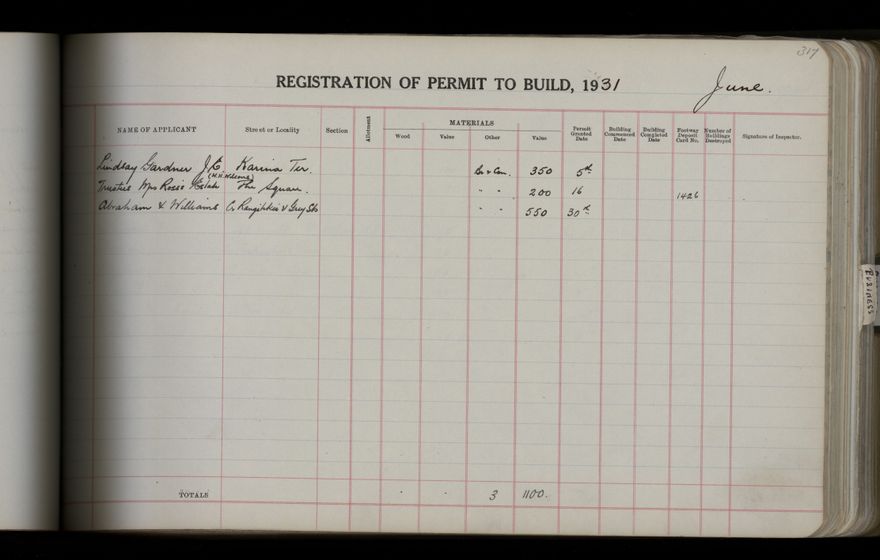 317
REGISTRATION OF PERMIT TO BUILD, 1931 June.
NAME OF APPLICANT Street or Locality Section Allotment MATERIALS Wood Value Other Value Permit Granted Date Building Commenced Date Building Completed Date Footway Deposit Card No. Number of Buildings Destroyed Signature of Inspector.
Lindsay Gardner Karina Ter. 350 5th
Trustees Mrs Rosss Estate The Square. " " 200 16 1426
Abraham & Williams Cr Rangitikei & Grey Sts " " 550 30th
TOTALS . . 3 1100.
BUSINESS